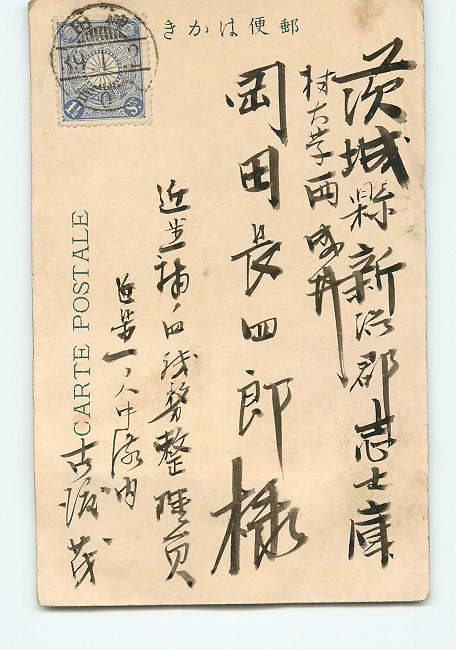 郵便はかき
茨城縣新治郡志士庫
村大字西成井
岡田長四郎様
近歩一補
近歩一ノ人中隊内
古渡茂
CARTE POSTALE
1½Sn